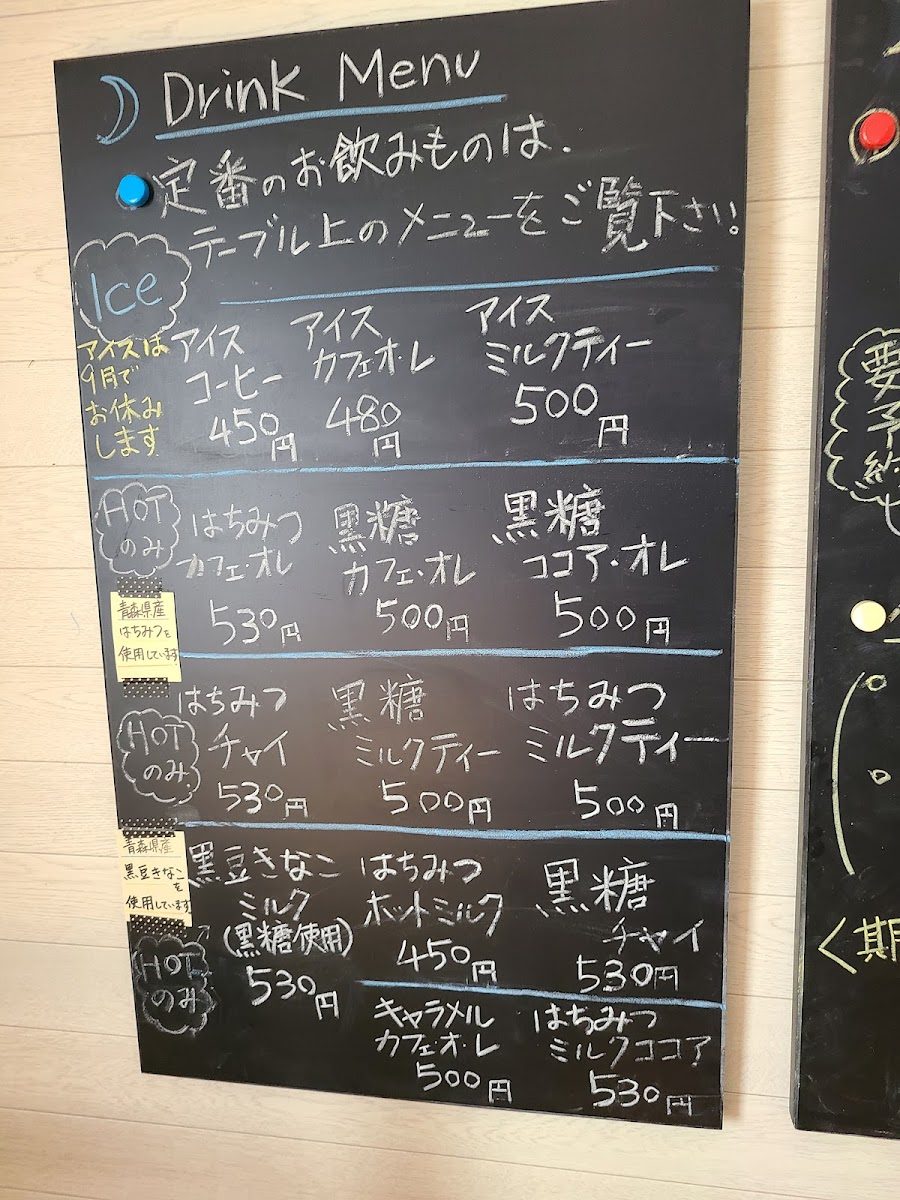 Drink Menu
定番のお飲みものは、
テーブル上のメニューをご覧下さい。
Ice
アイスは
9月で
お休み
します
アイス
コーヒー
450円
アイス
カフェ・オ・レ
480円
アイス
ミルクティー
500円
HOT
のみ
青森県産
はちみつを
使用しています
はちみつ
カフェ・オレ
530円
黒糖
カフェ・オレ
500円
黒糖
ココア・オレ
500円
HOT
のみ
はちみつ
チャイ
530円
黒糖
ミルクティー
500円
はちみつ
ミルクティー
500円
青森県産
黒豆きなこ
を
使用しています
HOT
のみ
黒豆きなこ
ミルク
(黒糖使用)
530円
はちみつ
ホットミルク
450円
黒糖
チャイ
530円
キャラメル
カフェ・オ・レ
500円
はちみつ
ミルクココア
530円
要
予
約
〈期